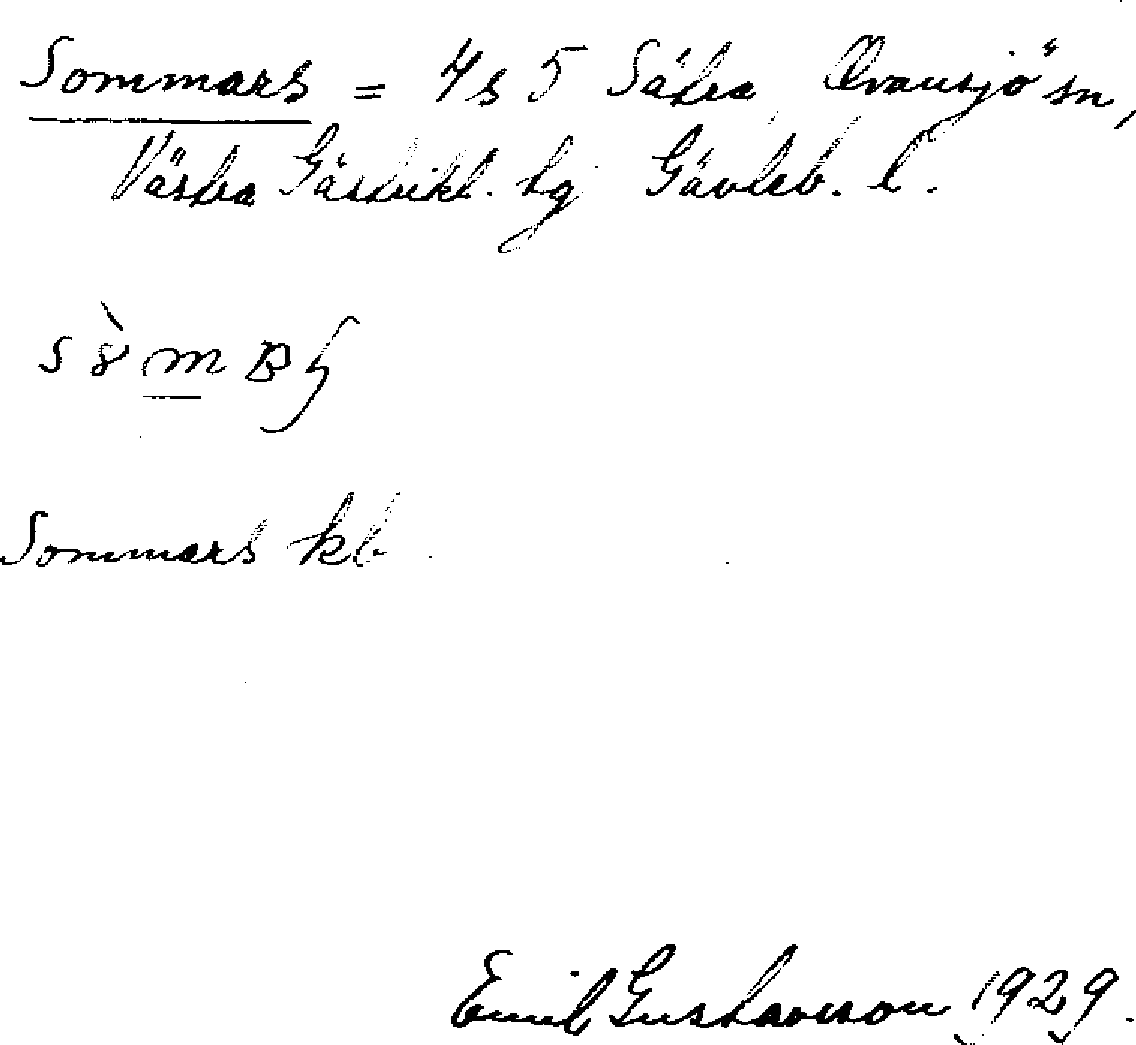 Sommars = 4s 5 Sätra, Ovansjö sn,
Västra Gästrikl. hg Gävleb. l.
Sommars kb.
Emil Gustavsson 1929.